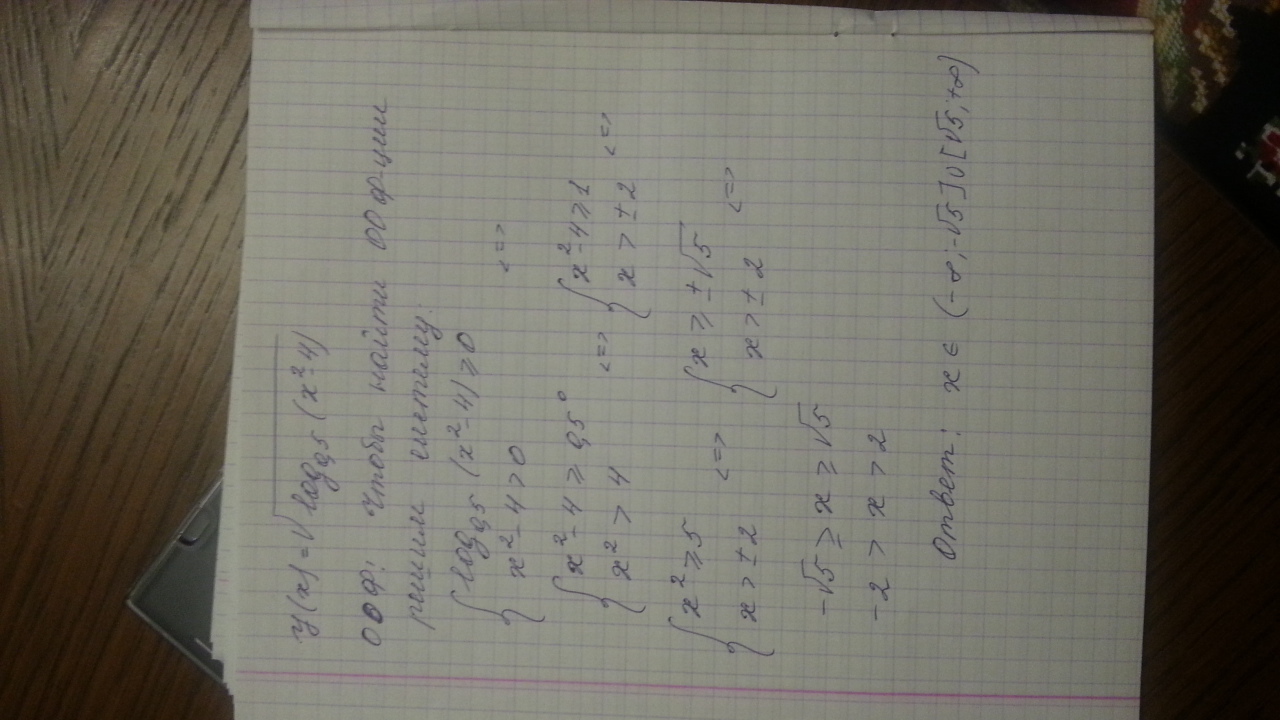 y(x) = √log₀,₅ (x² - 4)
ООФ: Чтобы найти ОО ф-ции
решим систему:
{ log₀,₅ (x² - 4) ⩾ 0
x² - 4 > 0 <=>
{ x² - 4 ⩾ 0,5⁰
x² > 4 <=> { x² - 4 ⩾ 1
x > ± 2 <=>
{ x² ⩾ 5
x > ± 2 <=> { x ⩾ ± √5
x > ± 2 <=>
-√5 ⩾ x ⩾ √5
-2 > x > 2
Ответ: x ∈ (-∞; -√5] ∪ [√5; +∞)